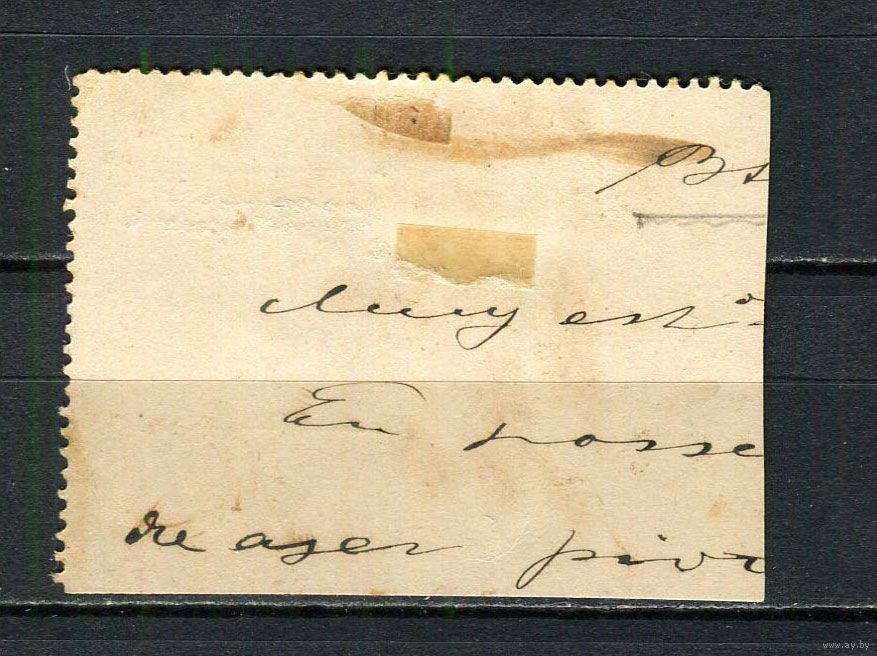 Bs
Muy esti
En posse
de ager pivr
www.ay.by